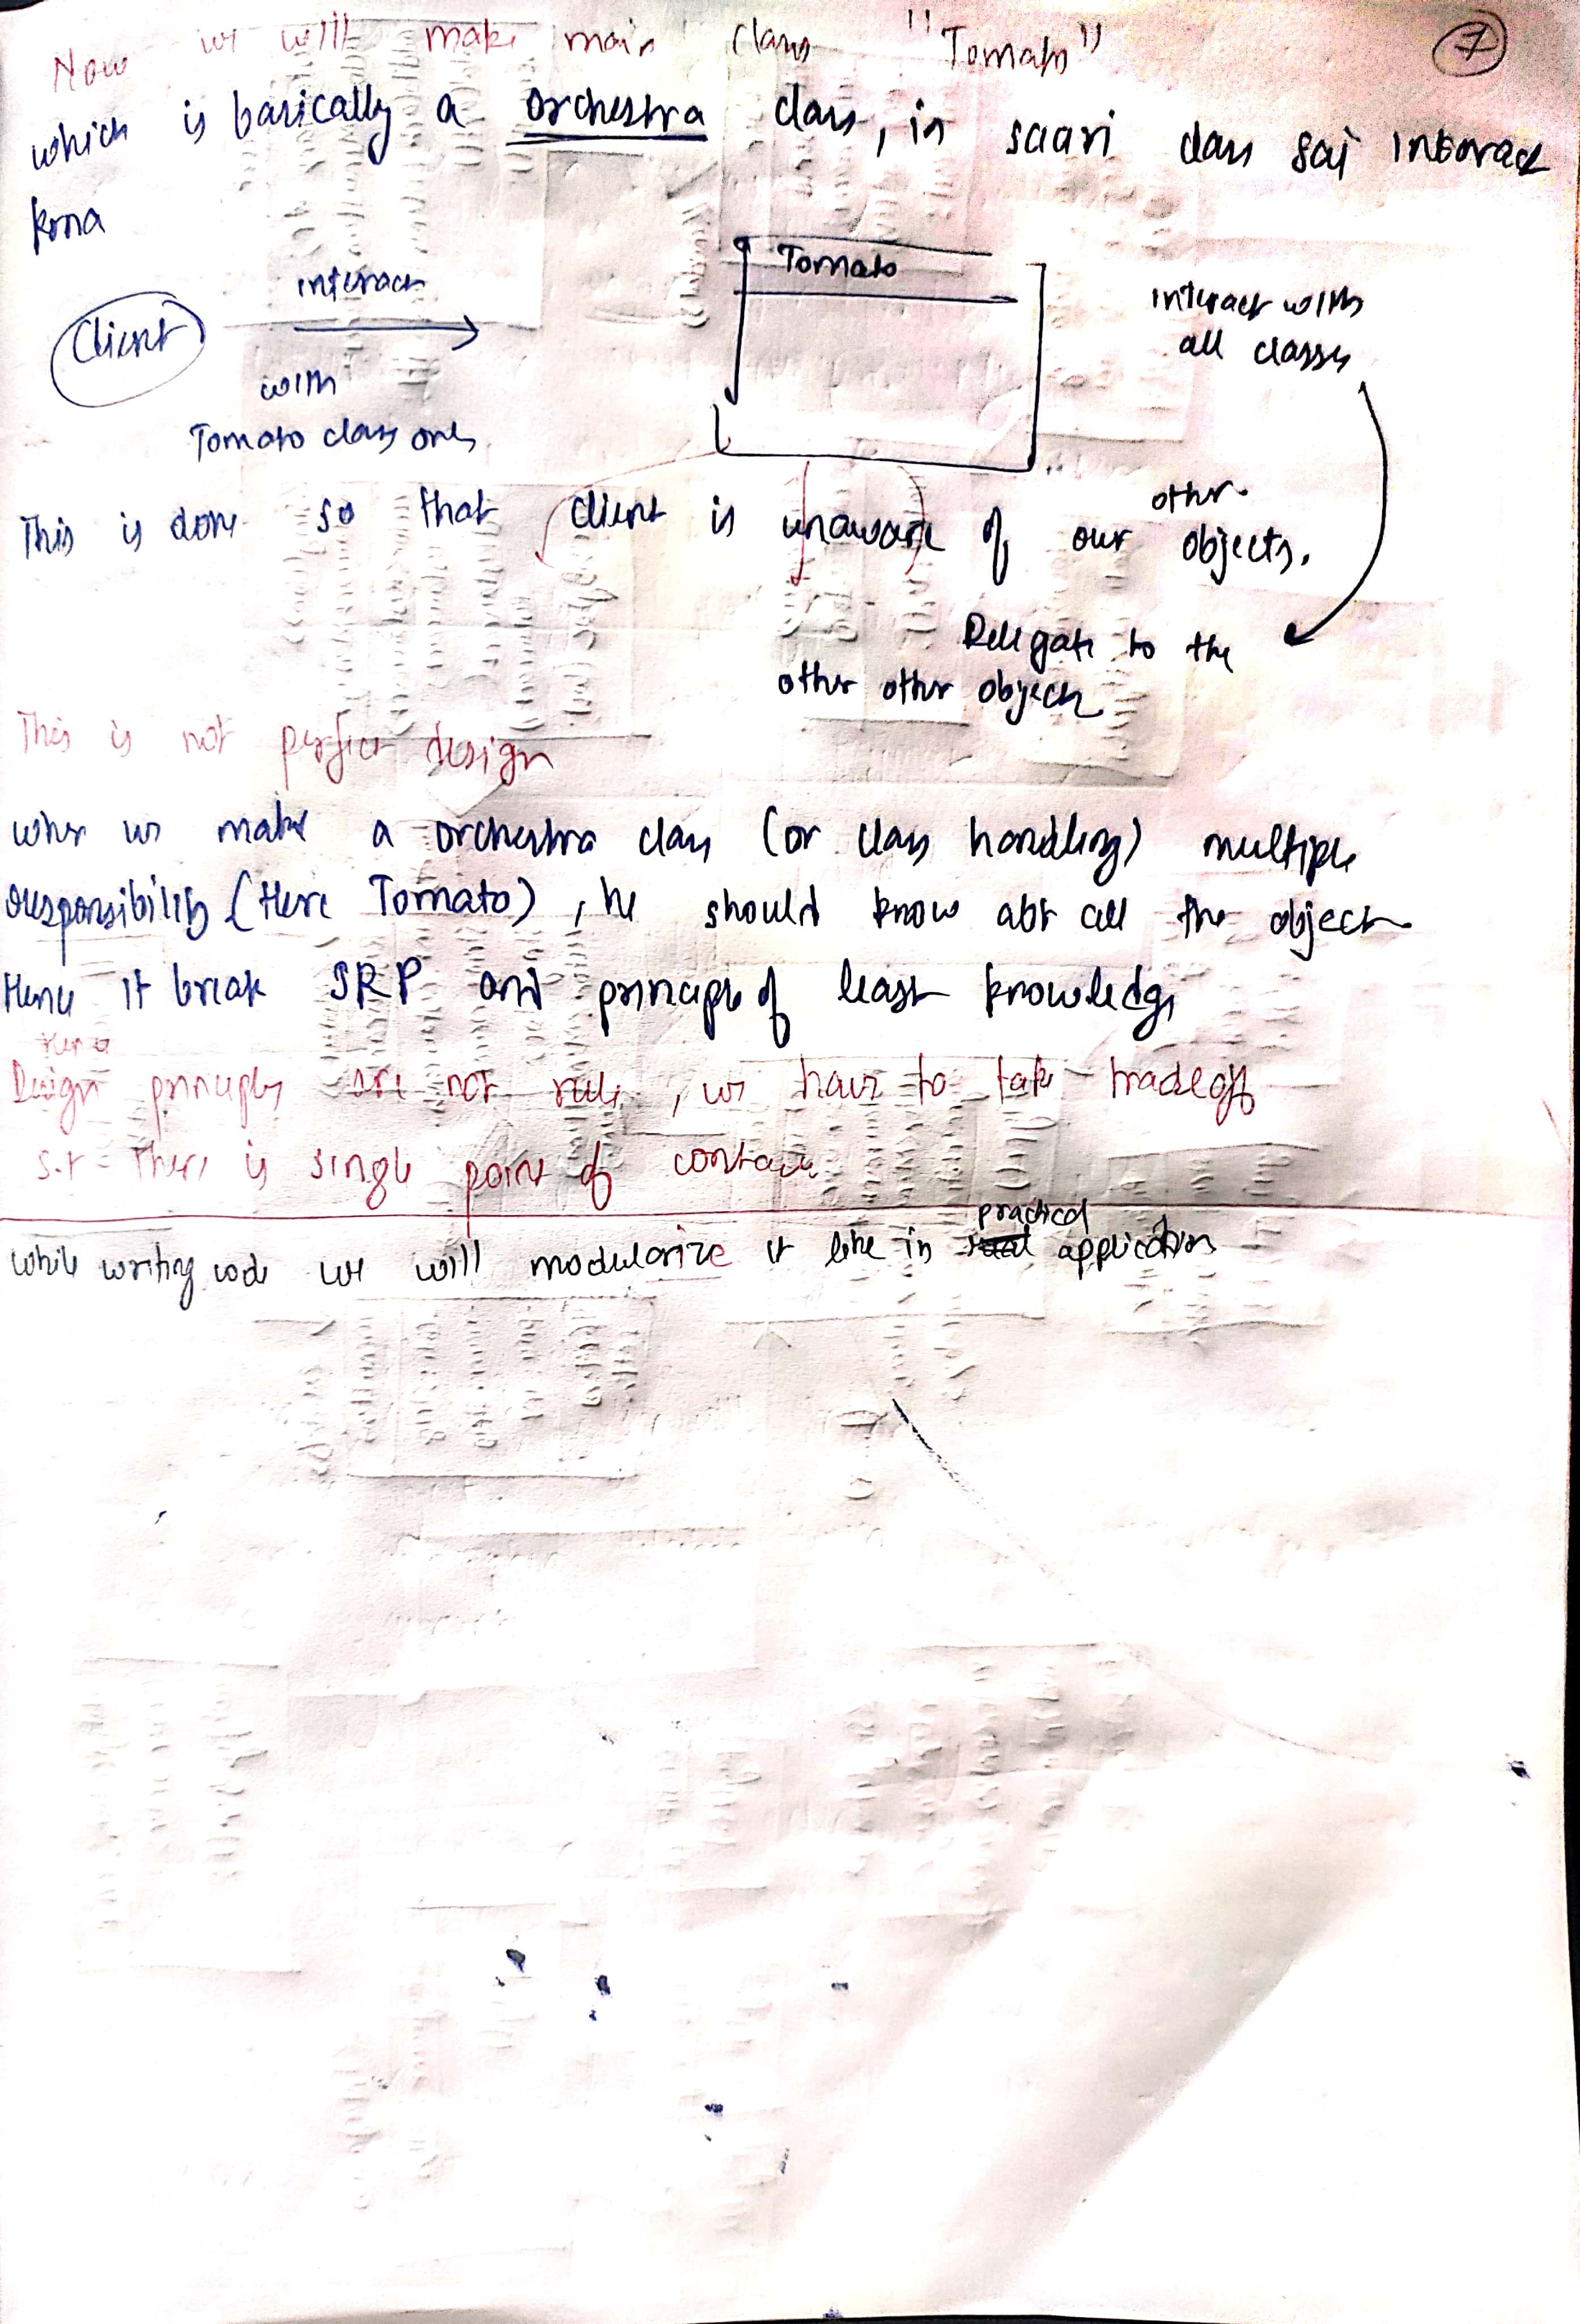 Now we will make main class "Tomato"
7
which is basically a orchestra class, in saari class sai interact
krna
Client
interact
with
Tomato class only
Tomato
interact with
all classes
This is done so that client is unaware of our other objects.
Delegate to the
other other objects
This is not perfect design
when we make a orchestra class (or class handling) multiple
responsibility (Here Tomato), he should know abt all the object
Hence it break SRP and principle of least knowledge
Design principles are not rule, we have to take tradeoff
s.t there is single point of contact
while writing code we will modularize it like in practical application